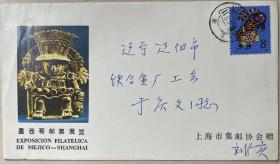 辽宁辽阳市
铁合金厂工会
于
8
墨西哥邮票展览
EXPOSICION FILATELICA
DE MEJICO—SHANGHAI
上海市集邮协会赠
刘广实